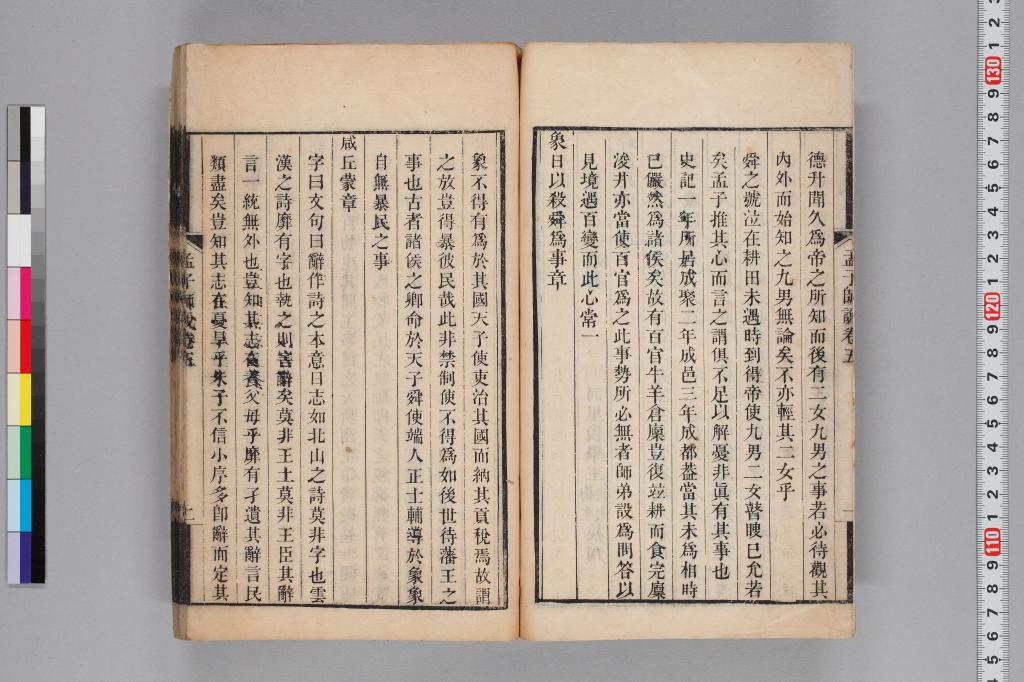 德升聞久爲帝之所知而後有二女九男之事若必待觀其
內外而始知之九男無論矣不亦輕其二女乎
舜之號泣在耕田未遇時到得帝使九男二女瞽瞍已允若
矣孟子推其心而言之謂俱不足以解憂非眞有其事也
史記一年所居成聚二年成邑三年成都葢當其未爲相時
已儼然爲諸侯矣故有百官牛羊倉廩豈復竝耕而食完廩
浚井亦當使百官爲之此事勢所必無者師弟設爲問答以
見境遇百變而此心常一
象日以殺舜爲事章
象不得有爲於其國天子使吏治其國而納其貢稅焉故謂
之放豈得暴彼民哉此非禁制使不得爲如後世待藩王之
事也古者諸侯之卿命於天子舜使端人正士輔導於象象
自無暴民之事
咸丘蒙章
字曰文句曰辭作詩之本意曰志如北山之詩莫非字也雲
漢之詩靡有字也執之則害辭矣莫非王土莫非王臣其辭
言一統無外也豈知其志在養父母乎靡有孑遺其辭言民
類盡矣豈知其志在憂旱乎朱子不信小序多卽辭而定其
孟子師說卷五
孟子師說卷五